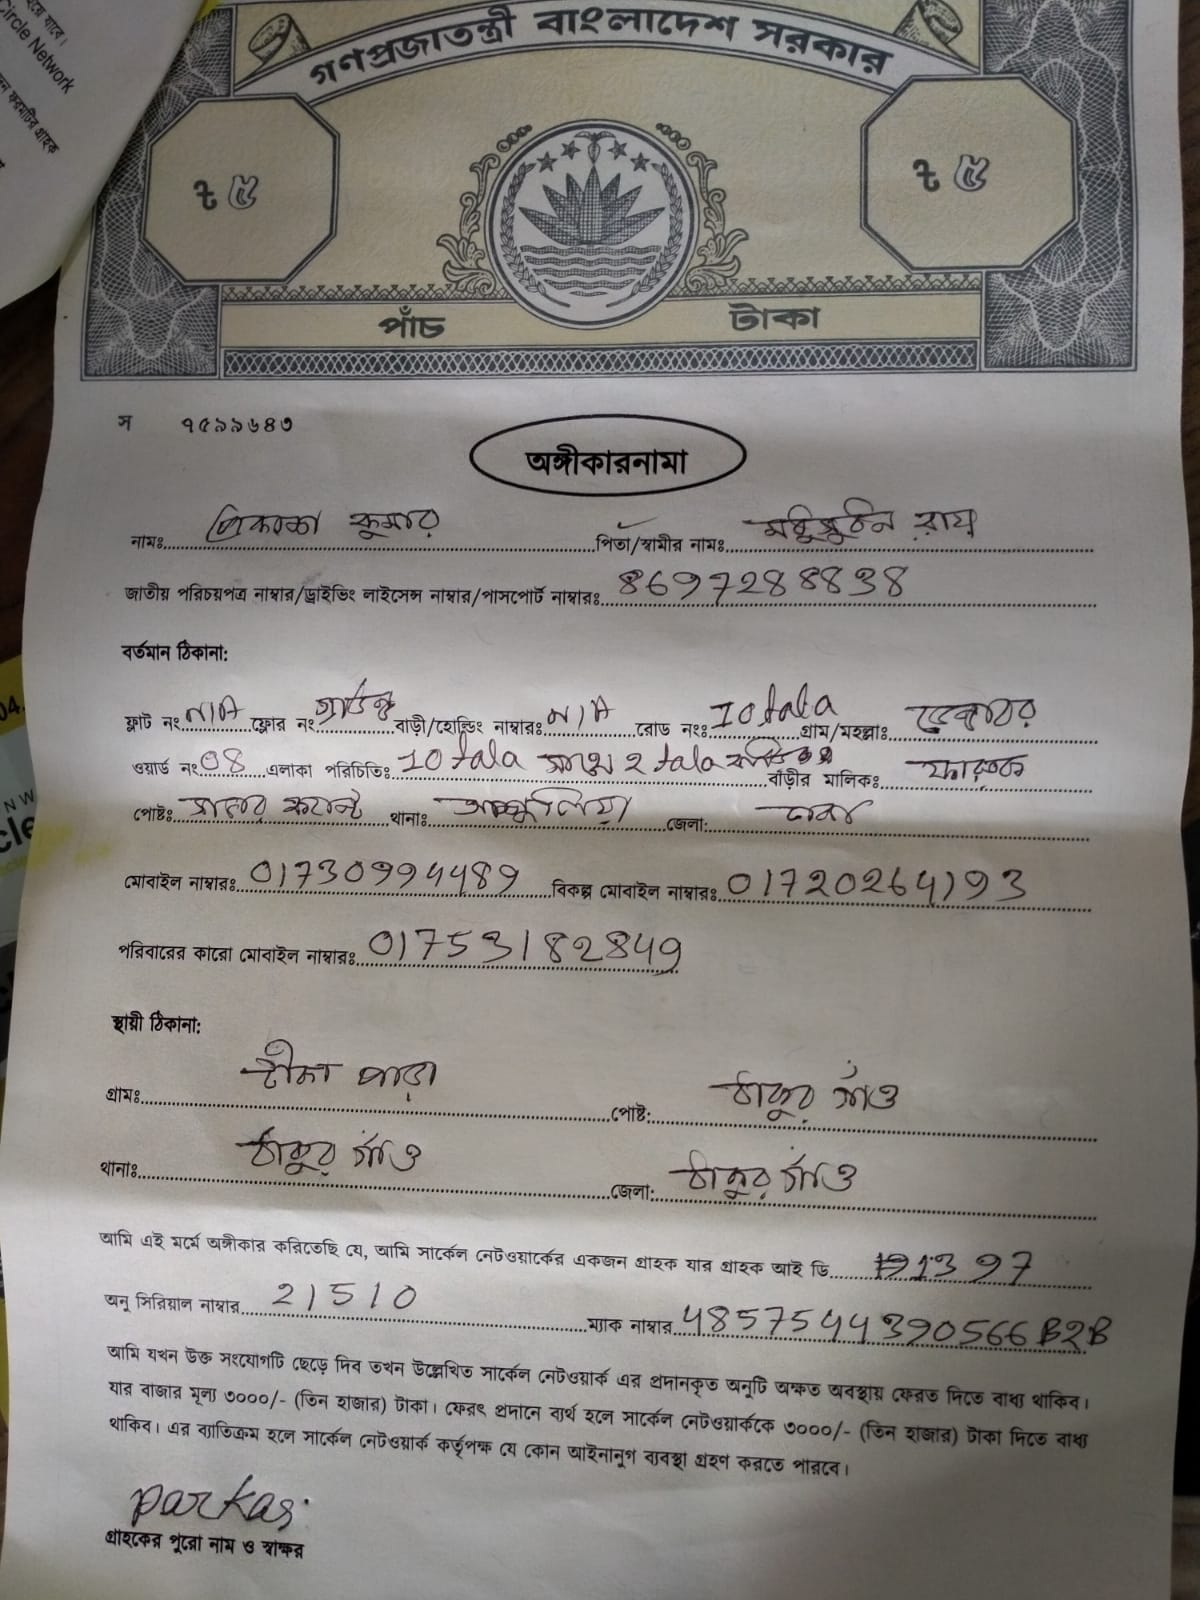 যাবে।
Circle Network
ফরমটির গ্রাহক
গণপ্রজাতন্ত্রী বাংলাদেশ সরকার
৳ ৫
৳ ৫
পাঁচ টাকা
স ৭৫৯৯৬৪৩
অঙ্গীকারনামা
নামঃ কুমার পিতা/স্বামীর নামঃ রায়
জাতীয় পরিচয়পত্র নাম্বার/ড্রাইভিং লাইসেন্স নাম্বার/পাসপোর্ট নাম্বারঃ 8697288838
বর্তমান ঠিকানা:
ফ্লাট নং N/A ফ্লোর নং বাড়ী/হোল্ডিং নাম্বারঃ N/A রোড নংঃ 10 tala গ্রাম/মহল্লাঃ
ওয়ার্ড নং 08 এলাকা পরিচিতিঃ 10 tala 2 tala বাড়ীর মালিকঃ
পোষ্টঃ থানাঃ আশুলিয়া জেলা: ঢাকা
মোবাইল নাম্বারঃ 01730994489 বিকল্প মোবাইল নাম্বারঃ 01720264193
পরিবারের কারো মোবাইল নাম্বারঃ 01753182849
স্থায়ী ঠিকানা:
গ্রামঃ পাড়া পোষ্ট: ঠাকুর গাঁও
থানাঃ ঠাকুর গাঁও জেলা: ঠাকুর গাঁও
আমি এই মর্মে অঙ্গীকার করিতেছি যে, আমি সার্কেল নেটওয়ার্কের একজন গ্রাহক যার গ্রাহক আই ডি
অনু সিরিয়াল নাম্বার 21510 ম্যাক নাম্বার 4857544390566B2B
আমি যখন উক্ত সংযোগটি ছেড়ে দিব তখন উল্লেখিত সার্কেল নেটওয়ার্ক এর প্রদানকৃত অনুটি অক্ষত অবস্থায় ফেরত দিতে বাধ্য থাকিব।
যার বাজার মূল্য ৩০০০/- (তিন হাজার) টাকা। ফেরৎ প্রদানে ব্যর্থ হলে সার্কেল নেটওয়ার্ককে ৩০০০/- (তিন হাজার) টাকা দিতে বাধ্য
থাকিব। এর ব্যাতিক্রম হলে সার্কেল নেটওয়ার্ক কর্তৃপক্ষ যে কোন আইনানুগ ব্যবস্থা গ্রহণ করতে পারবে।
parkas
গ্রাহকের পুরো নাম ও স্বাক্ষর